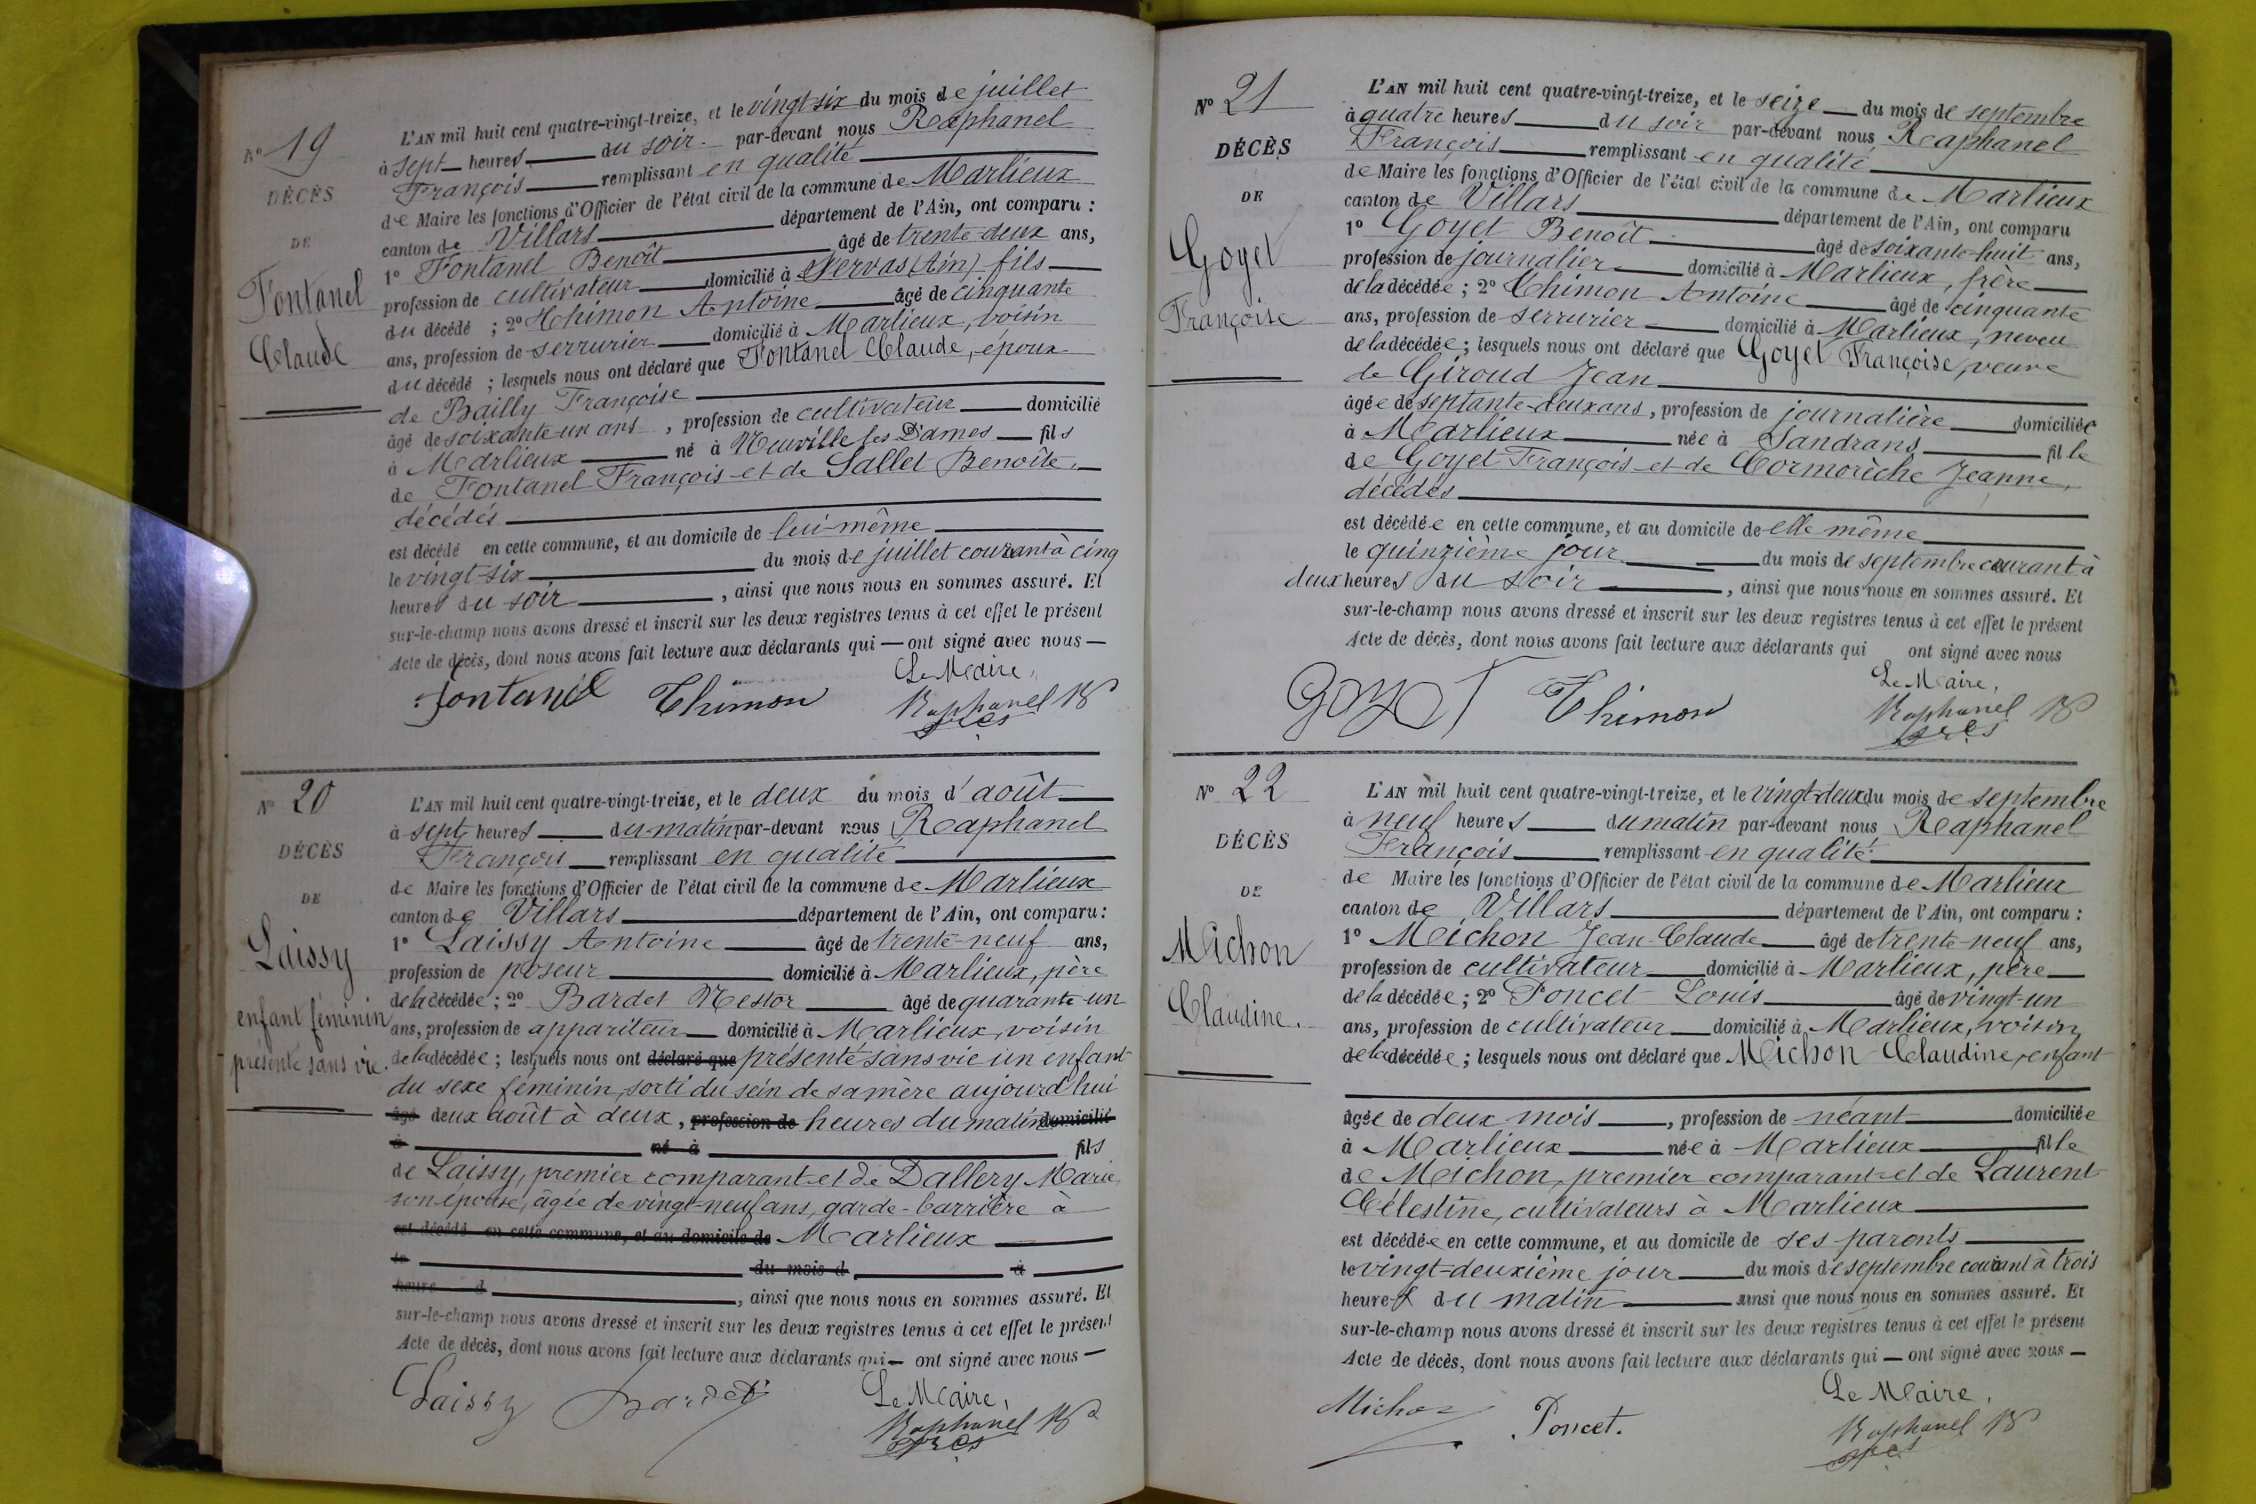 N° 19
DÉCÈS
DE
Fontanel
Claude
L'AN mil huit cent quatre-vingt-treize, et le vingt-six du mois de juillet
à sept heures du soir par-devant nous Raphanel
François remplissant en qualité
de Maire les fonctions d'Officier de l'état civil de la commune de Marlieux
canton de Villars département de l'Ain, ont comparu :
1° Fontanel Benoît âgé de trente-deux ans,
profession de cultivateur domicilié à Servas (Ain) fils
du décédé ; 2° Thimon Antoine âgé de cinquante
ans, profession de serrurier domicilié à Marlieux, voisin
du décédé ; lesquels nous ont déclaré que Fontanel Claude, époux
de Bailly Françoise
âgé de soixante-un ans, profession de cultivateur domicilié
à Marlieux né à Neuville les Dames fils
de Fontanel François et de Sallet Benoîte,
décédés
est décédé en cette commune, et au domicile de lui-même
le vingt-six du mois de juillet courant à cinq
heures du soir, ainsi que nous nous en sommes assuré. Et
sur-le-champ nous avons dressé et inscrit sur les deux registres tenus à cet effet le présent
Acte de décès, dont nous avons fait lecture aux déclarants qui ont signé avec nous
Le Maire,
Fontanel Thimon Raphanel
N° 20
DÉCÈS
DE
Laissy
enfant féminin
présenté sans vie.
L'AN mil huit cent quatre-vingt-treize, et le deux du mois d'août
à sept heures du matin par-devant nous Raphanel
François remplissant en qualité
de Maire les fonctions d'Officier de l'état civil de la commune de Marlieux
canton de Villars département de l'Ain, ont comparu :
1° Laissy Antoine âgé de trente-neuf ans,
profession de poseur domicilié à Marlieux, père
de la décédée ; 2° Bardet Nestor âgé de quarante-un
ans, profession de appariteur domicilié à Marlieux, voisin
de la décédée ; lesquels nous ont déclaré que présenté sans vie un enfant
du sexe féminin, sorti du sein de sa mère aujourd'hui
âgé deux août à deux, profession de heures du matin domicilié
à né à fils
de Laissy, premier comparant et de Dallery Marie
son épouse, âgée de vingt-neuf ans, garde-barrière à
est décédé en cette commune, et au domicile de Marlieux
le du mois d à
heure d, ainsi que nous nous en sommes assuré. Et
sur-le-champ nous avons dressé et inscrit sur les deux registres tenus à cet effet le présent
Acte de décès, dont nous avons fait lecture aux déclarants qui ont signé avec nous
Le Maire,
Laissy Bardet Raphanel
N° 21
DÉCÈS
DE
Goyet
Françoise
L'AN mil huit cent quatre-vingt-treize, et le seize du mois de septembre
à quatre heures du soir par-devant nous Raphanel
François remplissant en qualité
de Maire les fonctions d'Officier de l'état civil de la commune de Marlieux
canton de Villars département de l'Ain, ont comparu
1° Goyet Benoît âgé de soixante-huit ans,
profession de journalier domicilié à Marlieux, frère
de la décédée ; 2° Thimon Antoine âgé de cinquante
ans, profession de serrurier domicilié à Marlieux, neveu
de la décédée ; lesquels nous ont déclaré que Goyet Françoise, veuve
de Giroud Jean
âgée de septante-deux ans, profession de journalière domiciliée
à Marlieux née à Sandrans fille
de Goyet François et de Cormorèche Jeanne,
décédés
est décédée en cette commune, et au domicile de elle même
le quinzième jour du mois de septembre courant à
deux heures du soir, ainsi que nous nous en sommes assuré. Et
sur-le-champ nous avons dressé et inscrit sur les deux registres tenus à cet effet le présent
Acte de décès, dont nous avons fait lecture aux déclarants qui ont signé avec nous
Le Maire,
Goyet Thimon Raphanel
N° 22
DÉCÈS
DE
Michon
Claudine.
L'AN mil huit cent quatre-vingt-treize, et le vingt-deux du mois de septembre
à neuf heures du matin par-devant nous Raphanel
François remplissant en qualité
de Maire les fonctions d'Officier de l'état civil de la commune de Marlieux
canton de Villars département de l'Ain, ont comparu :
1° Michon Jean-Claude âgé de trente-neuf ans,
profession de cultivateur domicilié à Marlieux, père
de la décédée ; 2° Poncet Louis âgé de vingt-un
ans, profession de cultivateur domicilié à Marlieux, voisin
de la décédée ; lesquels nous ont déclaré que Michon Claudine, enfant
âgée de deux mois, profession de néant domiciliée
à Marlieux née à Marlieux fille
de Michon, premier comparant et de Laurent
Célestine, cultivateurs à Marlieux
est décédée en cette commune, et au domicile de ses parents
le vingt-deuxième jour du mois de septembre courant à trois
heures du matin ainsi que nous nous en sommes assuré. Et
sur-le-champ nous avons dressé et inscrit sur les deux registres tenus à cet effet le présent
Acte de décès, dont nous avons fait lecture aux déclarants qui ont signé avec nous
Le Maire,
Michon Poncet. Raphanel